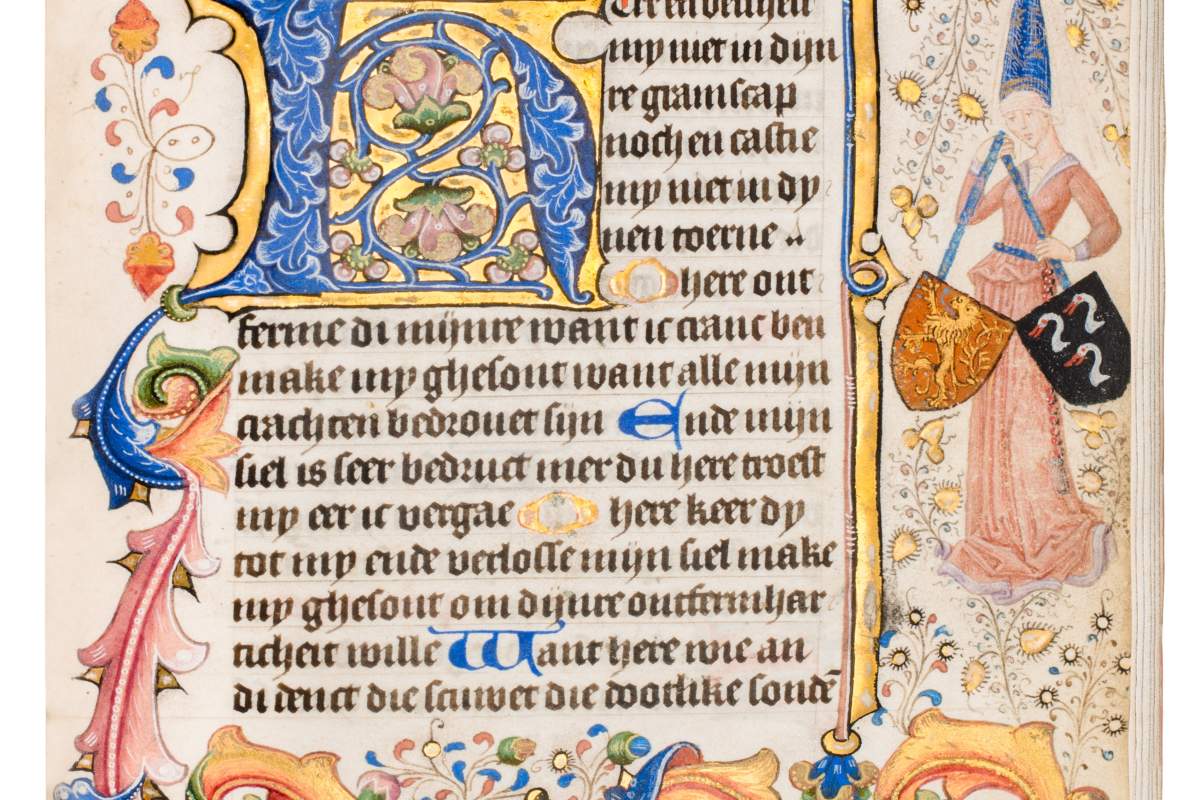 H ere en
my niet in dijn
re gramscap
noch en castie
my niet in dy
nen toerne ..
O here ont
ferme di mijnre want ic cranc ben
make my ghesont want alle mijn
crachten bedrouet sijn Ende mijn
siel is seer bedruct mer du here troest
my eer ic vergae O here keer dy
tot my ende verlosse mijn siel make
my ghesont om dijnre ontfermhar
ticheit wille Want here wie an
di denct die scuwet die dootlike sondē